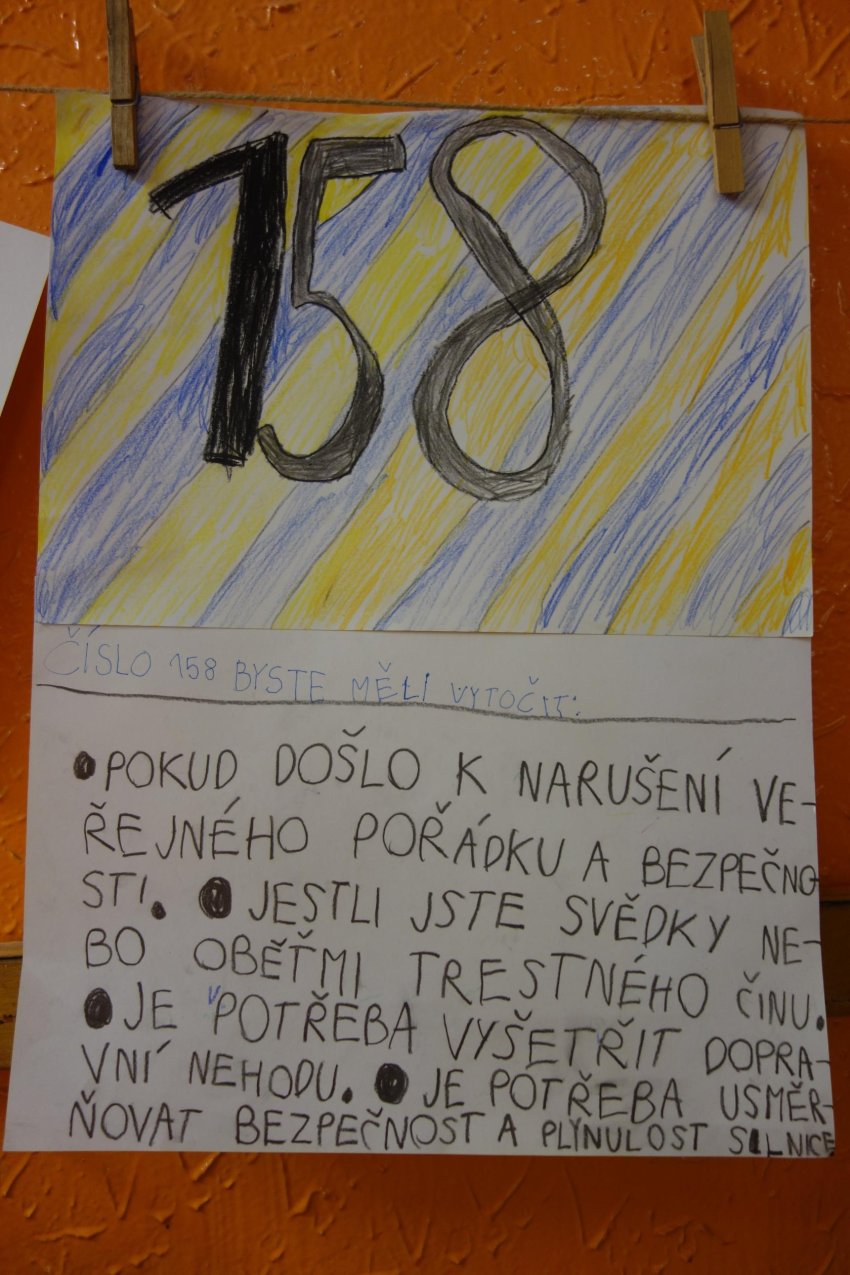 158
ČÍSLO 158 BYSTE MĚLI VYTOČIT:
• POKUD DOŠLO K NARUŠENÍ VE-
ŘEJNÉHO POŘÁDKU A BEZPEČNO
STI. • JESTLI JSTE SVĚDKY NE-
BO OBĚŤMI TRESTNÉHO ČINU.
• JE POTŘEBA VYŠETŘIT DOPRA-
VNÍ NEHODU. • JE POTŘEBA USMĚR-
ŇOVAT BEZPEČNOST A PLYNULOST SILNICE